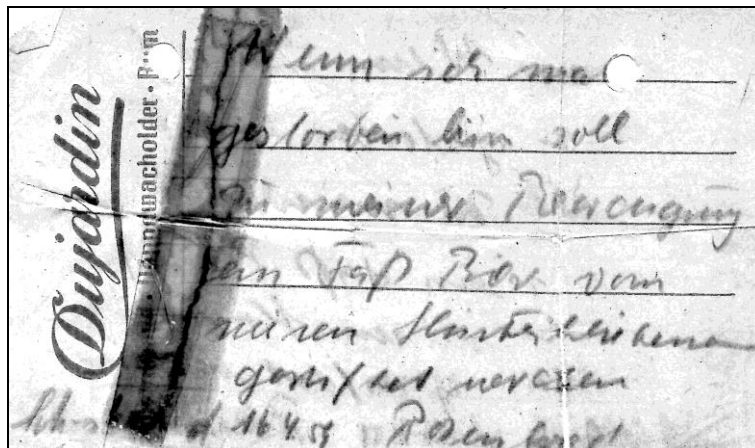 Dujardin
Wenn ich mal
gestorben bin soll
zu meiner Beerdigung
ein Faß Bier von
meinen Hinterbliebenen
gestiftet werden